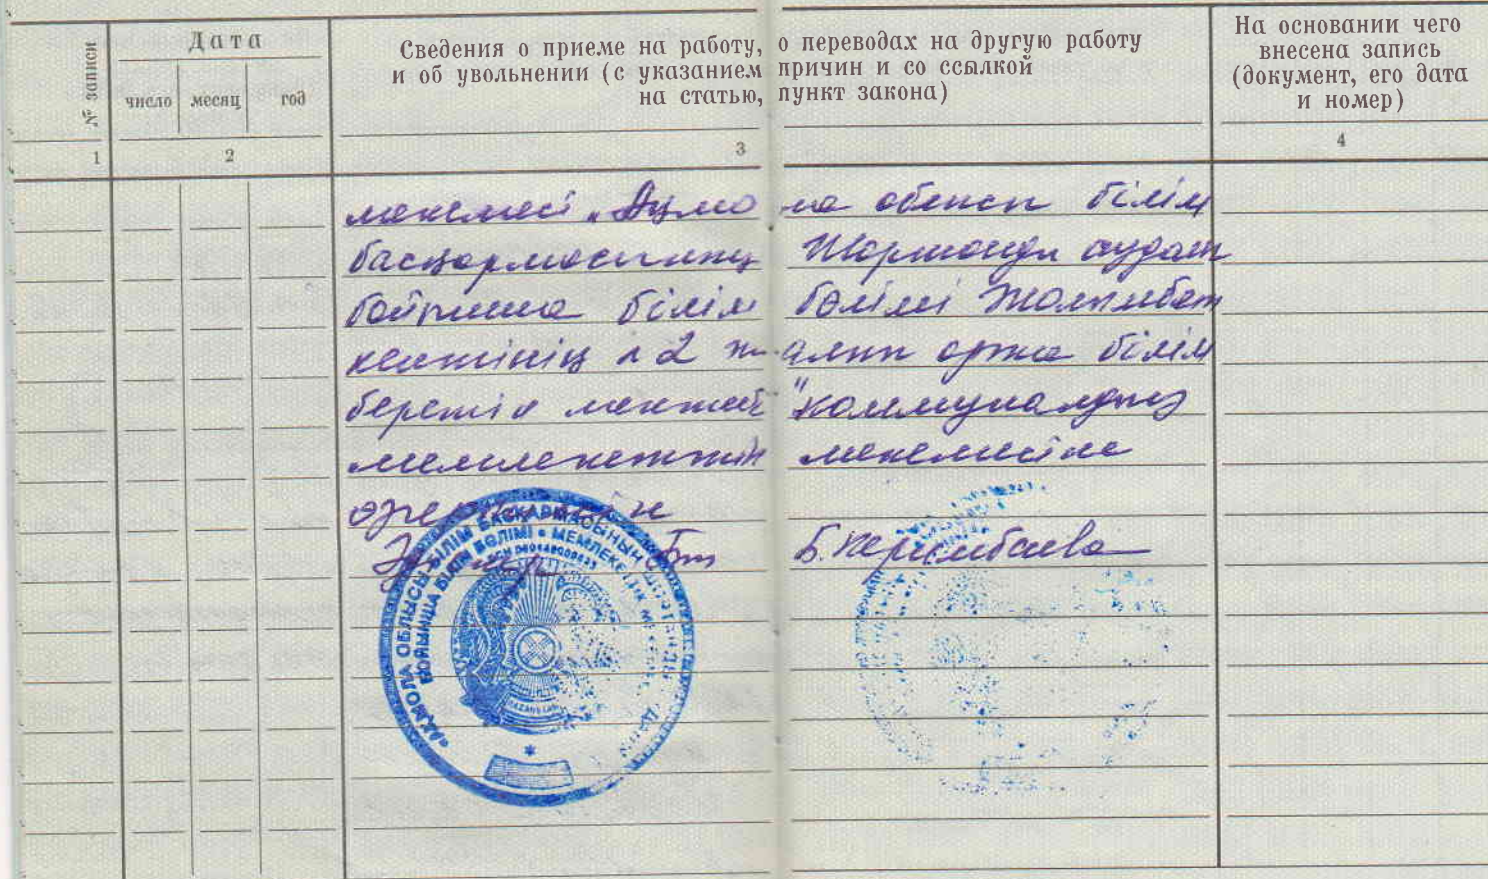 № записи
Дата
число месяц год
Сведения о приеме на работу, о переводах на другую работу
и об увольнении (с указанием причин и со ссылкой
на статью, пункт закона)
На основании чего
внесена запись
(документ, его дата
и номер)
1 2 3 4
мекемесі "Ақмола облысы білім
басқармасының Шортанды ауданы
бойынша білім бөлімі Жолымбет
кентінің №2 жалпы орта білім
беретін мектебі" коммуналдық
мемлекеттік мекемесіне
өзгертілген
Б. Керимбаева
«АҚМОЛА ОБЛЫСЫ БІЛІМ БАСҚАРМАСЫНЫҢ ШОРТАНДЫ
БОЙЫНША БІЛІМ БӨЛІМІ» МЕМЛЕКЕТТІК